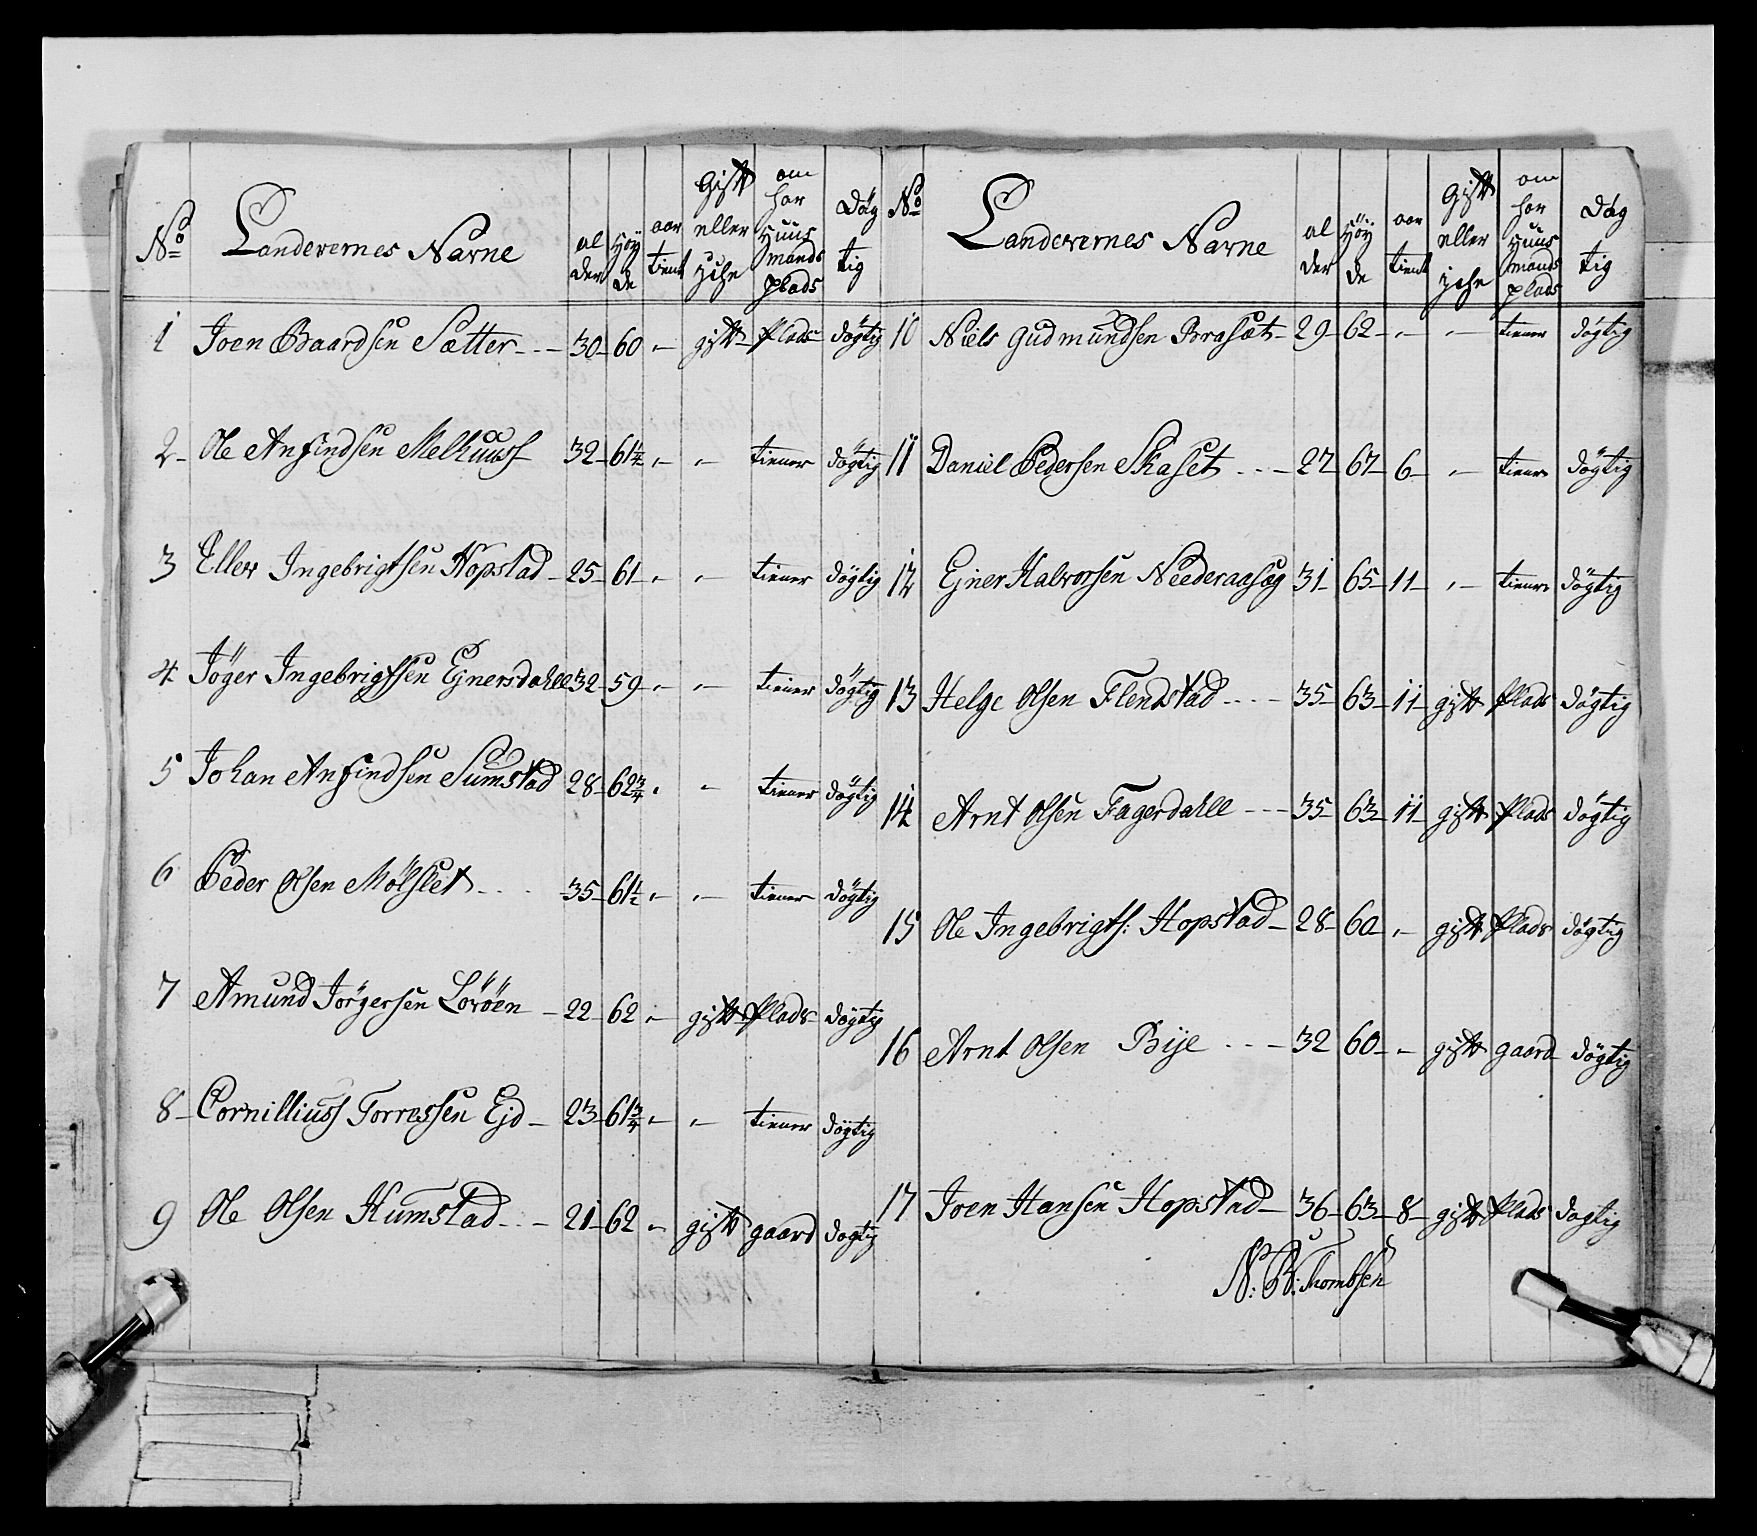 No Landevernes Navne al der Høy de aar tient Gift eller ej che om har Huus mands plads Dög tig
1 Joen Baardsen Sætter 30 60 „ gift Plads dögtig
2 Ole Anfindsen Melhuus 32 61¼ „ „ tiener dögtig
3 Eller Ingebrigtsen Hopstad 25 61 „ „ tiener dögtig
4 Jöger Ingebrigtsen Ejnersdahll 32 59 „ „ tiener dögtig
5 Johan Anfindsen Sumstad 28 62¾ „ „ tiener dögtig
6 Peder Olsen Mölslet 35 61½ „ „ tiener dögtig
7 Amund Jörgersen Loröen 22 62 „ gift Plads dögtig
8 Cornillius Torressen Ejd 23 61¾ „ „ tiener dögtig
9 Ole Olsen Humstad 21 62 „ gift gaard dogtig
No Landevernes Navne al der Høy de aar tient Gift eller ej che om har Huus mands plads Dög tig
10 Niels Gudmundsen Brasæt 29 62 „ „ tiener dögtig
11 Daniel Pedersen Skaset 27 67 6 „ tiener dögtig
12 Ejner Halvorsen Neederaasæg 31 65 11 „ tiener dögtig
13 Helge Olsen Flendstad 35 63 11 gift Plads dögtig
14 Arnt Olsen Fagerdahll 35 63 11 gift Plads dögtig
15 Ole Ingebrigts: Hopstad 28 60 „ gift Plads dögtig
16 Arnt Olsen Bye 32 60 „ gift gaard dögtig
17 Joen Hansen Hopstad 36 63 8 gift Plads dogtig
N: B: Thombsen